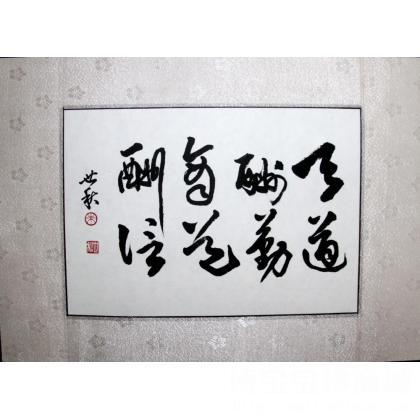 天道
酬勤
商道
酬信
世秋